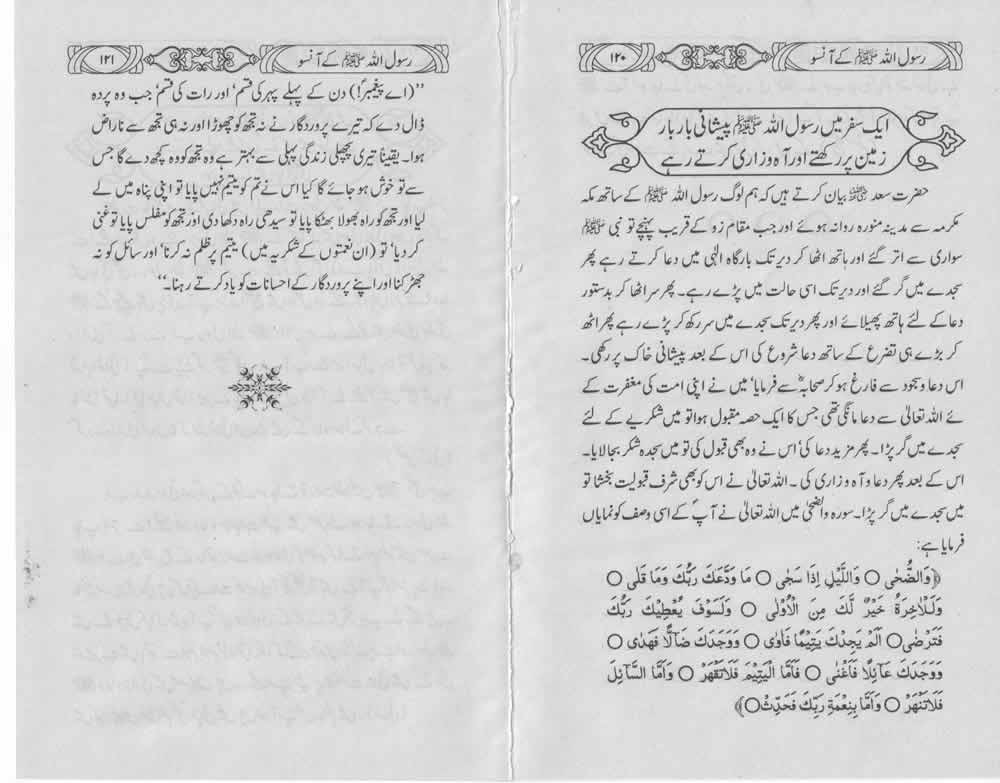 رسول اللہ ﷺ کے آنسو
۱۲۰
ایک سفر میں رسول اللہ ﷺ پیشانی بار بار
زمین پر رکھتے اور آہ وزاری کرتے رہے
حضرت سعد ؓ بیان کرتے ہیں کہ ہم لوگ رسول اللہ ﷺ کے ساتھ مکہ
مکرمہ سے مدینہ منورہ روانہ ہوئے اور جب مقام زو کے قریب پہنچے تو نبی ﷺ
سواری سے اتر گئے اور ہاتھ اٹھا کر دیر تک بارگاہ الٰہی میں دعا کرتے رہے پھر
سجدے میں گر گئے اور دیر تک اسی حالت میں پڑے رہے۔ پھر سر اٹھا کر بدستور
دعا کے لئے ہاتھ پھیلائے اور پھر دیر تک سجدے میں سر رکھ کر پڑے رہے پھر اٹھ
کر بڑے ہی تضرع کے ساتھ دعا شروع کی اس کے بعد پیشانی خاک پر رکھی۔
اس دعا و سجود سے فارغ ہو کر صحابہؓ سے فرمایا‘ میں نے اپنی امت کی مغفرت کے
لئے اللہ تعالیٰ سے دعا مانگی تھی جس کا ایک حصہ مقبول ہوا تو میں شکریے کے لئے
سجدے میں گر پڑا۔ پھر مزید دعا کی‘ اس نے وہ بھی قبول کی تو میں سجدہ شکر بجا لایا۔
اس کے بعد پھر دعا و آہ وزاری کی۔ اللہ تعالیٰ نے اس کو بھی شرف قبولیت بخشا تو
میں سجدے میں گر پڑا۔ سورہ والضحیٰ میں اللہ تعالیٰ نے آپؐ کے اسی وصف کو نمایاں
فرمایا ہے:
﴿وَالضُّحٰی ○ وَاللَّیْلِ اِذَا سَجٰی ○ مَا وَدَّعَكَ رَبُّكَ وَمَا قَلٰی ○
وَلَـلْاٰخِرَۃُ خَیْرٌ لَّكَ مِنَ الْاُوْلٰی ○ وَلَسَوْفَ یُعْطِیْكَ رَبُّكَ
فَتَرْضٰی○ اَلَمْ یَجِدْكَ یَتِیْمًا فَاٰوٰی ○ وَوَجَدَكَ ضَآلًّا فَهَدٰی ○
وَوَجَدَكَ عَآئِلًا فَاَغْنٰی ○ فَاَمَّا الْیَتِیْمَ فَلَا تَقْهَرْ ○ وَاَمَّا السَّآئِلَ
فَلَا تَنْهَرْ ○ وَاَمَّا بِنِعْمَةِ رَبِّكَ فَحَدِّثْ○﴾
رسول اللہ ﷺ کے آنسو
۱۲۱
’’(اے پیغمبر!) دن کے پہلے پہر کی قسم‘ اور رات کی قسم‘ جب وہ پردہ
ڈال دے کہ تیرے پروردگار نے نہ تجھ کو چھوڑا اور نہ ہی تجھ سے ناراض
ہوا۔ یقیناً تیری پچھلی زندگی پہلی سے بہتر ہے وہ تجھ کو وہ کچھ دے گا جس
سے تو خوش ہو جائے گا کیا اس نے تم کو یتیم نہیں پایا تو اپنی پناہ میں لے
لیا اور تجھ کو راہ بھولا بھٹکا پایا تو سیدھی راہ دکھا دی اور تجھ کو مفلس پایا تو غنی
کر دیا‘ تو (ان نعمتوں کے شکریہ میں) یتیم پر ظلم نہ کرنا‘ اور سائل کو نہ
جھڑکنا اور اپنے پروردگار کے احسانات کو یاد کرتے رہنا۔‘‘